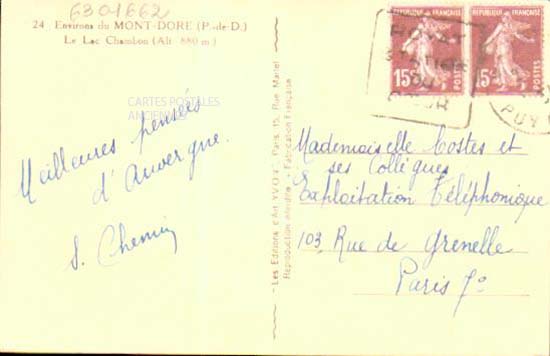 6301662
24 Environs du MONT-DORE (P.-de-D.)
Le Lac Chambon (Alt. 880 m)
CARTES POSTALES
ANCIENNES
Meilleures pensées
d'Auvergne.
S. Chemin
Les Editions d'Art "YVON", Paris, 15, Rue Martel
Reproduction interdite - Fabrication Française
REPUBLIQUE FRANÇAISE
15c
POSTES
REPUBLIQUE FRANÇAISE
15c
POSTES
PUY
Mademoiselle Costes et
ses Collègues
Exploitation Téléphonique
103, Rue de Grenelle
Paris 7e